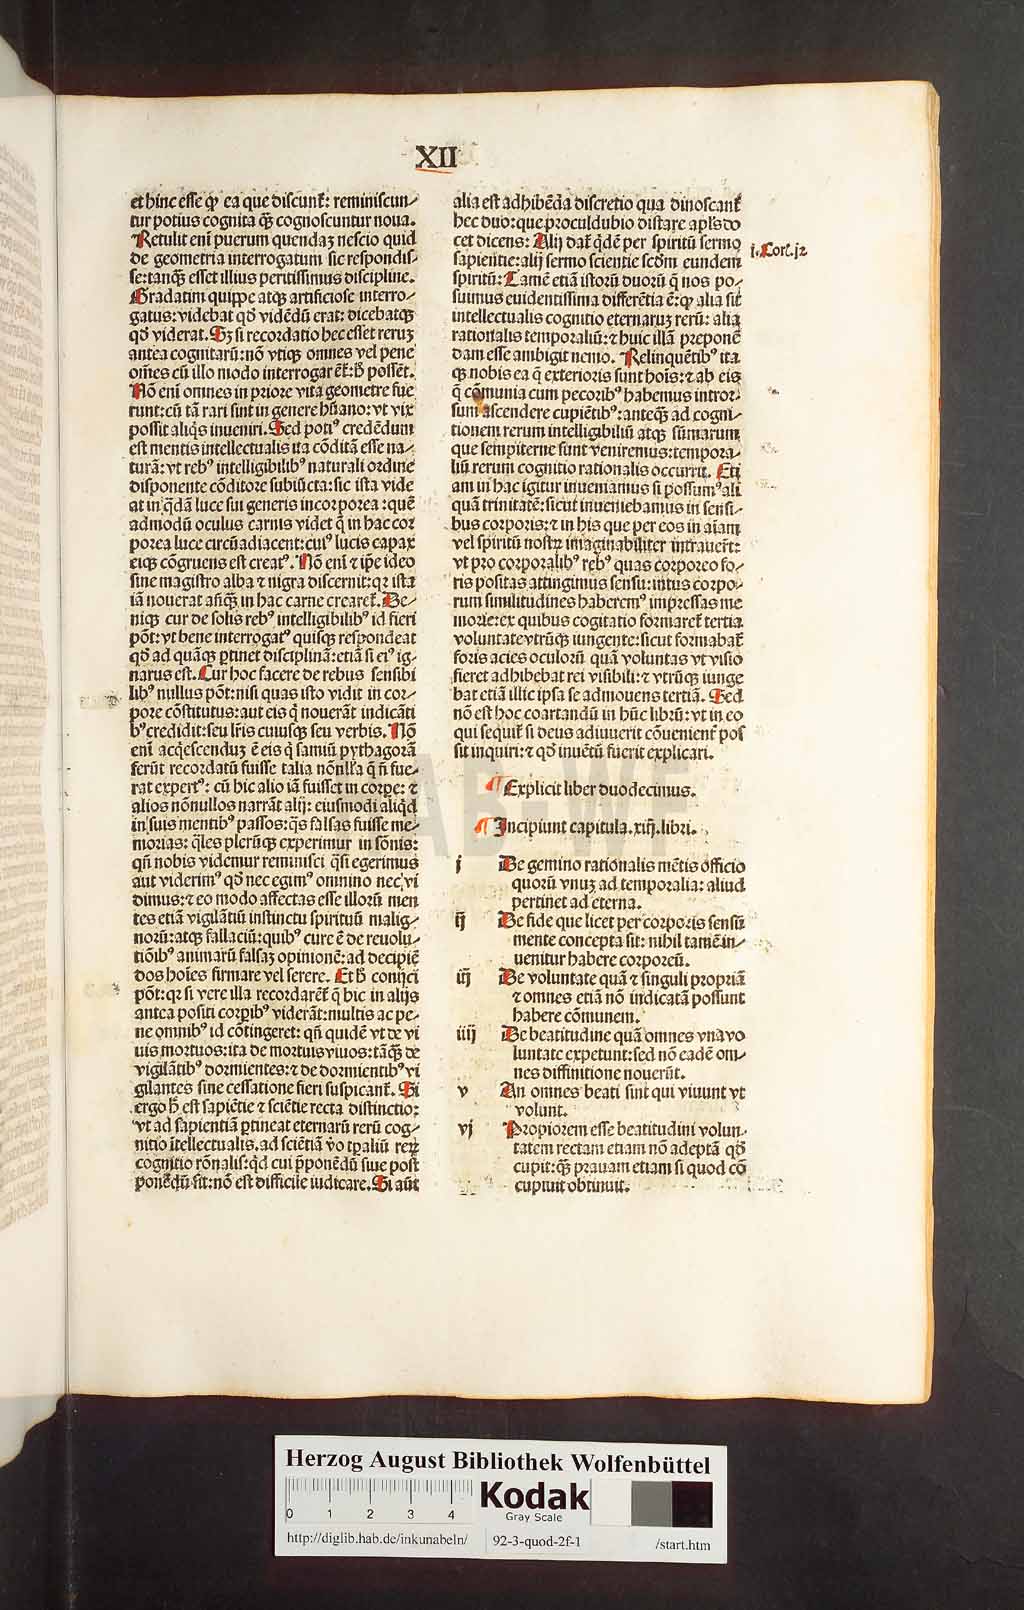 XII
et hinc esse qꝫ ea que discunt᷑: reminiscun⸗
tur potius cognita qͣꝫ cognoscuntur noua.
Retulit enī puerum quendaꝫ nescio quid
de geometria interrogatum sic respondis⸗
se: tanqͣꝫ esset illius peritissimus discipline.
Gradatim quippe atqꝫ artificiose interro⸗
gatus: videbat qd̕ vidēdū erat: dicebatqꝫ
qd̕ viderat. Sꝫ si recordatio hec esset reruꝫ
antea cognitarū: nō vtiqꝫ omnes vel pene
om̄es cū illo modo interrogarēt᷑: h̕ possēt.
Nō enī omnes in priore vita geometre fue
runt: cū tā rari sint in genere hūano: vt vix
possit aliqͥs inueniri. Sed potiꝰ credēdum
est mentis intellectualis ita cōditā esse na⸗
turā: vt rebꝰ intelligibilibꝰ naturali ordine
disponente cōditore subiūcta: sic ista vide
at in qͣdā luce sui generis incorporea: quē
admodū oculus carnis videt q̄ in hac cor
porea luce circūadiacent: cuiꝰ lucis capax
eiqꝫ cōgruens est creatꝰ. Nō enī ⁊ ip̄e ideo
sine magistro alba ⁊ nigra discernit: qꝛ ista
iā nouerat anͣ̄qꝫ in hac carne crearet᷑. De⸗
niqꝫ cur de solis rebꝰ intelligibilibꝰ id fieri
pōt: vt bene interrogatꝰ quisqꝫ respondeat
qd̕ ad quāqꝫ ꝑtinet disciplinā: etiā si eiꝰ ig⸗
narus est. Cur hoc facere de rebus sensibi
libꝰ nullus pōt: nisi quas isto vidit in cor⸗
pore cōstitutus: aut eis q̄ nouerāt indicāti
bꝰ credidit: seu lr̄is cuiusqꝫ seu verbis. Nō
enī acq̇escenduꝫ ē eis q̄ samiū pythagorā
ferūt recordatū fuisse talia nōnll̕a q̄ n̄ fue⸗
rat expertꝰ: cū hic alio iā fuisset in corꝑe: ⁊
alios nōnullos narrāt alij: eiusmodi aliqͥd
in suis mentibꝰ passos: qͣs falsas fuisse me⸗
morias: qͣles plerūqꝫ experimur in sōnis:
qn̄ nobis videmur reminisci qͣsi egerimus
aut viderimꝰ qd̕ nec egimꝰ omnino nec vi
dimus: ⁊ eo modo affectas esse illorū men
tes etiā vigilātiū instinctu spirituū malig⸗
norū: atqꝫ fallaciū: quibꝰ cure ē de reuolu⸗
tiōibꝰ animarū falsaꝫ opinionē: ad decipiē
dos hoīes firmare vel serere. Et h̕ conijci
pōt: qꝛ si vere illa recordarēt᷑ q̄ hic in alijs
antea positi corꝑibꝰ viderāt: multis ac pe⸗
ne omnibꝰ id cōtingeret: qn̄ quidē vt de vi
uis mortuos: ita de mortuis viuos: tāqͣꝫ de
vigilātibꝰ dormientes: ⁊ de dormientibꝰ vi
gilantes sine cessatione fieri suspicant᷑. Si
ergo h̕ est sapiētie ⁊ sciētie recta distinctio:
vt ad sapientiā ꝑtineat eternarū rerū cog⸗
nitio ītellectualis. ad sciētiā vo tꝑaliū reꝝ
cognitio rōnalis: qͥd cui p̄ponēdū siue post
ponēdū sit: nō est difficile iudicare. Si aūt
alia est adhibēda discretio qua dinoscant᷑
hec duo: que proculdubio distare apl̕s do
cet dicens: Alij dat᷑ qͥdē per spiritū sermo
sapientie: alij sermo scientie scd̕m eundem
spiritū: Tamē etiā istorū duorū q̄ nos po⸗
suimus euidentissima differētia ē: qꝫ alia sit
intellectualis cognitio eternaruꝫ rerū: alia
rationalis temporaliū: ⁊ huic illā preponē
dam esse ambigit nemo. Relinquētibꝰ ita
qꝫ nobis ea q̄ exterioris sunt hoīs: ⁊ ab eis
q̄ cōmunia cum pecoribꝰ habemus intror⸗
sum ascendere cupiētibꝰ: anteqͣꝫ ad cogni⸗
tionem rerum intelligibiliū atqꝫ sūmarum
que sempiterne sunt veniremus: tempora⸗
liū rerum cognitio rationalis occurrit. Eti
am in hac igitur inueniamus si possumꝰ ali
quā trinitatē: sicut inueniebamus in sensi⸗
bus corporis: ⁊ in his que per eos in aīam
vel spiritū nostꝝ imaginabiliter intrauerūt:
vt pro corporalibꝰ rebꝰ quas corporeo fo⸗
ris positas attingimus sensu: intus corpo⸗
rum similitudines haberemꝰ impressas me
morie: ex quibus cogitatio formaret᷑ tertia
voluntate vtrūqꝫ iungente: sicut formabat᷑
foris acies oculorū quā voluntas vt visio
fieret adhibebat rei visibili: ⁊ vtrūqꝫ iunge
bat etiā illic ipsa se admouens tertiā. Sed
nō est hoc coartandū in hūc librū: vt in eo
qui sequit᷑ si deus adiuuerit cōuenient᷑ pos
sit inquiri: ⁊ qd̕ inuētū fuerit explicari.
i. Cor. 12
¶ Explicit liber duodecimus.
¶ Incipiunt capitula. xiij. libri.
j De gemino rationalis mētis officio
quorū vnuꝫ ad temporalia: aliud
pertinet ad eterna.
ij De fide que licet per corporis sensū
mente concepta sit: nihil tamē in⸗
uenitur habere corporeū.
iij De voluntate quā ⁊ singuli propriā
⁊ omnes etiā nō indicatā possunt
habere cōmunem.
iiij De beatitudine quā omnes vna vo
luntate expetunt: sed nō eadē om⸗
nes diffinitione nouerūt.
v An omnes beati sint qui viuunt vt
volunt.
vj Propiorem esse beatitudini volun⸗
tatem rectam etiam nō adeptā qd̕
cupit: qͣꝫ prauam etiam si quod cō
cupiuit obtinuit.
HAB-WF
Herzog August Bibliothek Wolfenbüttel
0 1 2 3 4
Kodak
Gray Scale
http://diglib.hab.de/inkunabeln/ 92-3-quod-2f-1 /start.htm